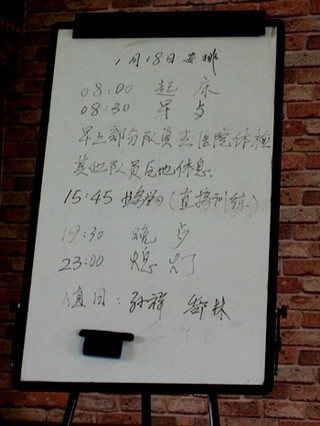 1月18日安排
08:00 起床
08:30 早点
早上部分队员去医院体检
其他队员驻地休息.
15:45 (直接训练)
19:30 晚点
23:00 熄灯
值日: 孙祥 郜林